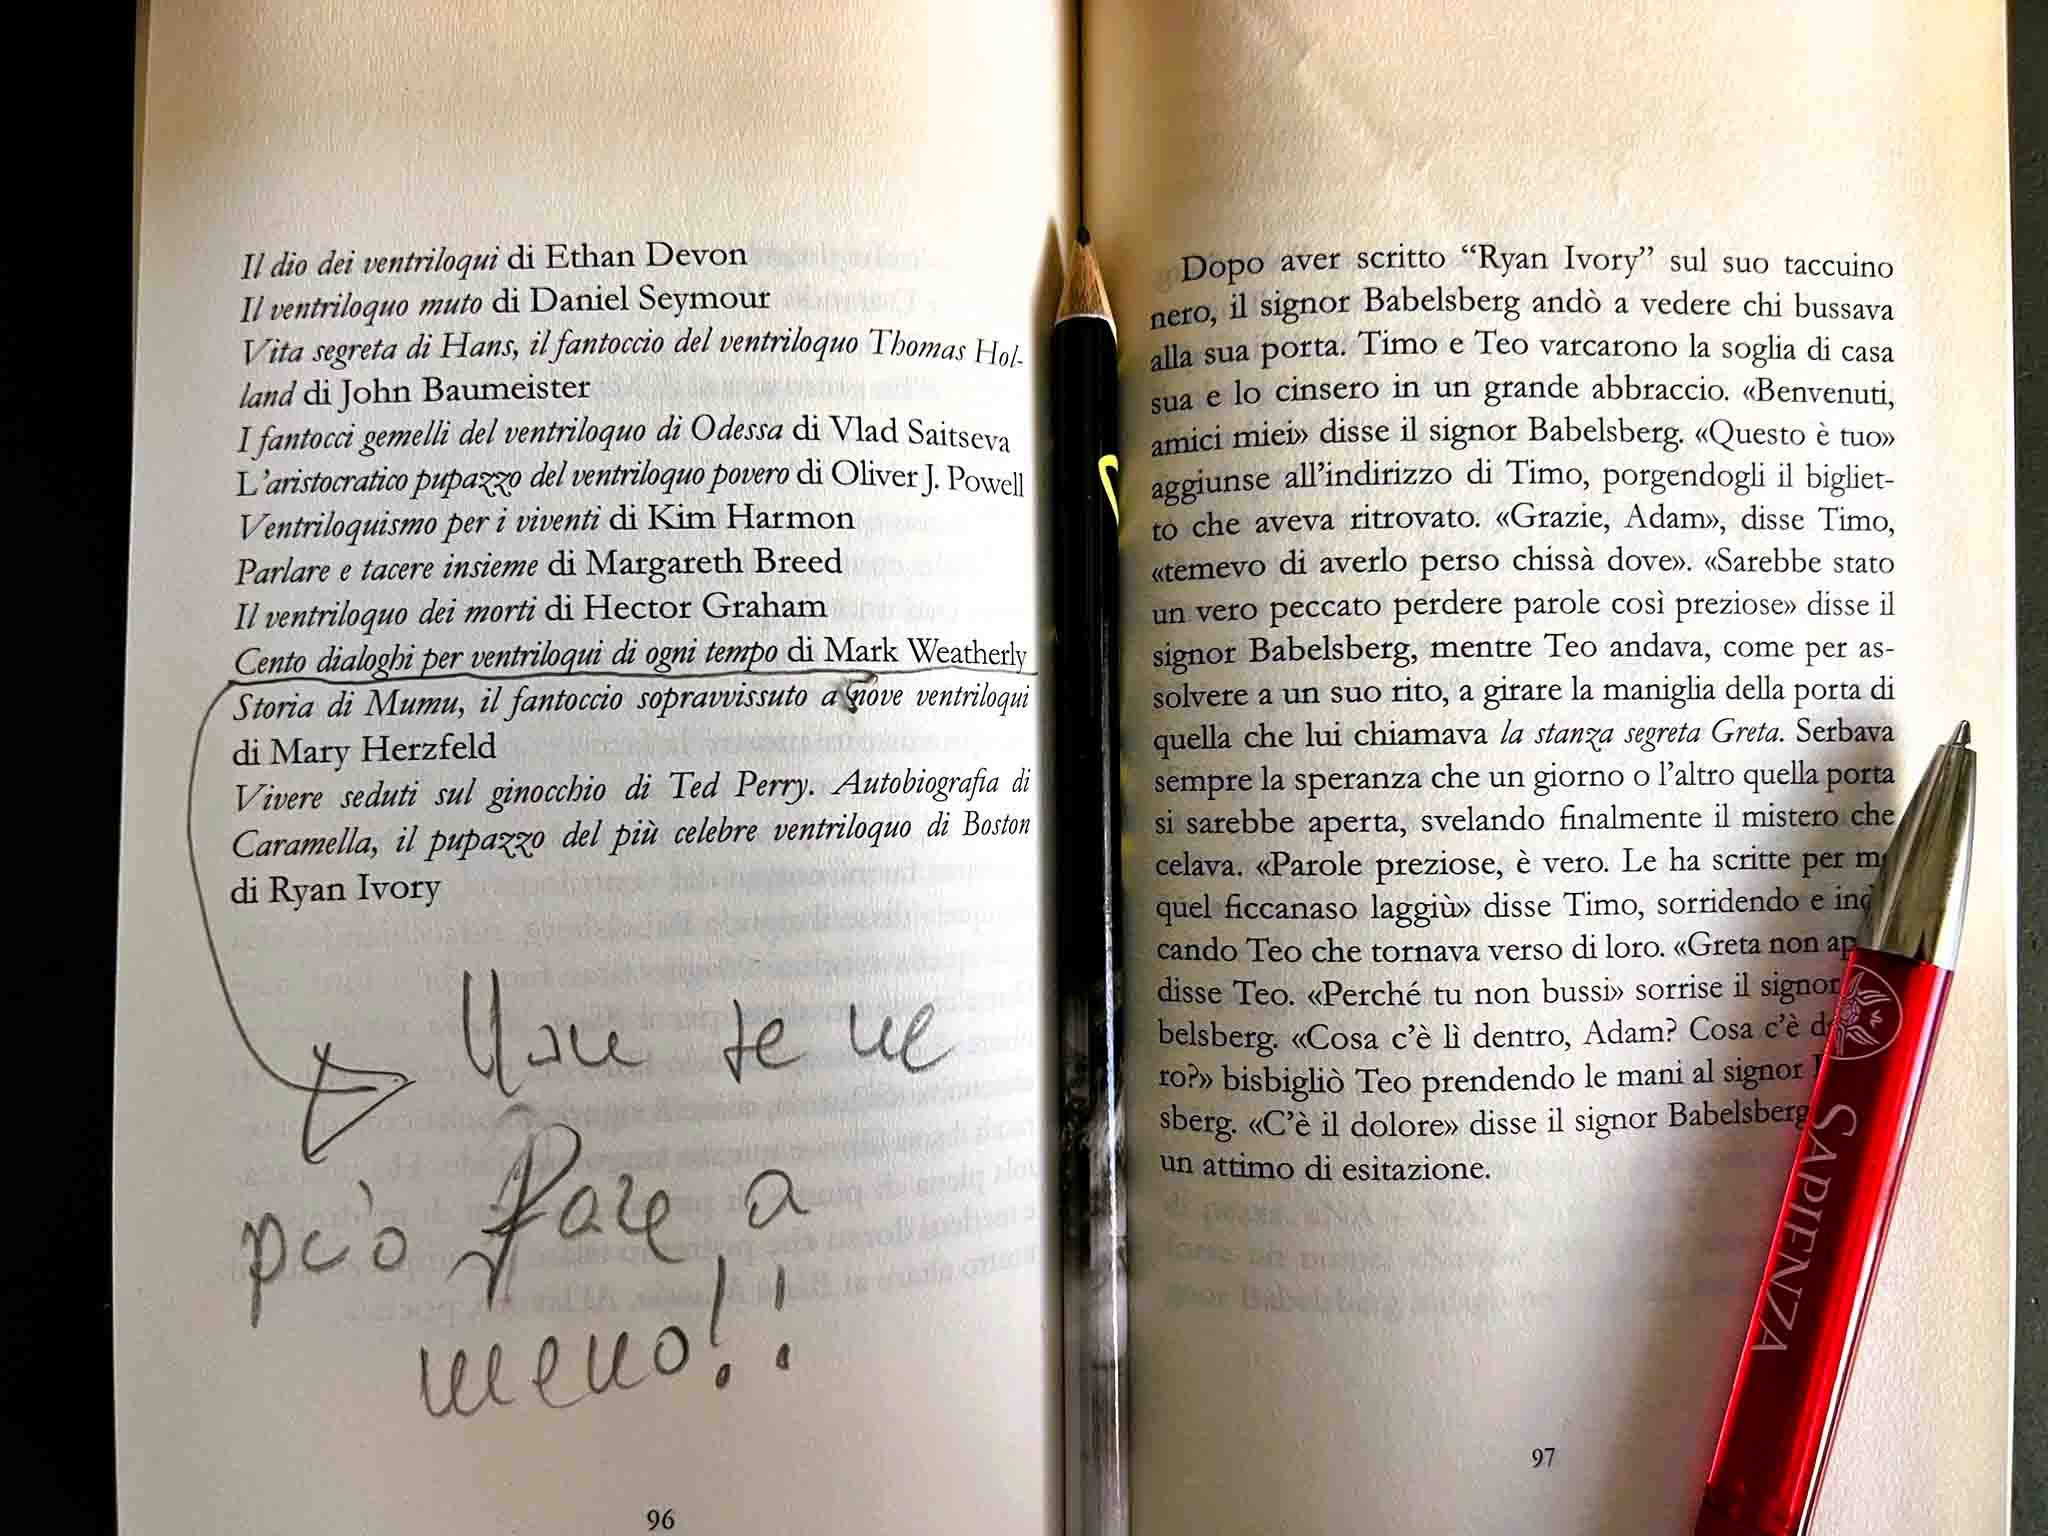 Il dio dei ventriloqui di Ethan Devon
Il ventriloquo muto di Daniel Seymour
Vita segreta di Hans, il fantoccio del ventriloquo Thomas Hol-
land di John Baumeister
I fantocci gemelli del ventriloquo di Odessa di Vlad Saitseva
L'aristocratico pupazzo del ventriloquo povero di Oliver J. Powell
Ventriloquismo per i viventi di Kim Harmon
Parlare e tacere insieme di Margareth Breed
Il ventriloquo dei morti di Hector Graham
Cento dialoghi per ventriloqui di ogni tempo di Mark Weatherly
Storia di Mumu, il fantoccio sopravvissuto a nove ventriloqui
di Mary Herzfeld
Vivere seduti sul ginocchio di Ted Perry. Autobiografia di
Caramella, il pupazzo del più celebre ventriloquo di Boston
di Ryan Ivory
Non se ne
può fare a
meno!!
96
Dopo aver scritto “Ryan Ivory” sul suo taccuino
nero, il signor Babelsberg andò a vedere chi bussava
alla sua porta. Timo e Teo varcarono la soglia di casa
sua e lo cinsero in un grande abbraccio. «Benvenuti,
amici miei» disse il signor Babelsberg. «Questo è tuo»
aggiunse all'indirizzo di Timo, porgendogli il bigliet-
to che aveva ritrovato. «Grazie, Adam», disse Timo,
«temevo di averlo perso chissà dove». «Sarebbe stato
un vero peccato perdere parole così preziose» disse il
signor Babelsberg, mentre Teo andava, come per as-
solvere a un suo rito, a girare la maniglia della porta di
quella che lui chiamava la stanza segreta Greta. Serbava
sempre la speranza che un giorno o l'altro quella porta
si sarebbe aperta, svelando finalmente il mistero che
celava. «Parole preziose, è vero. Le ha scritte per
quel ficcanaso laggiù» disse Timo, sorridendo e
cando Teo che tornava verso di loro. «Greta non
disse Teo. «Perché tu non bussi» sorrise il signor
belsberg. «Cosa c'è lì dentro, Adam? Cosa c'è
ro?» bisbigliò Teo prendendo le mani al signor
sberg. «C'è il dolore» disse il signor Babelsberg
un attimo di esitazione.
97
SAPIENZA